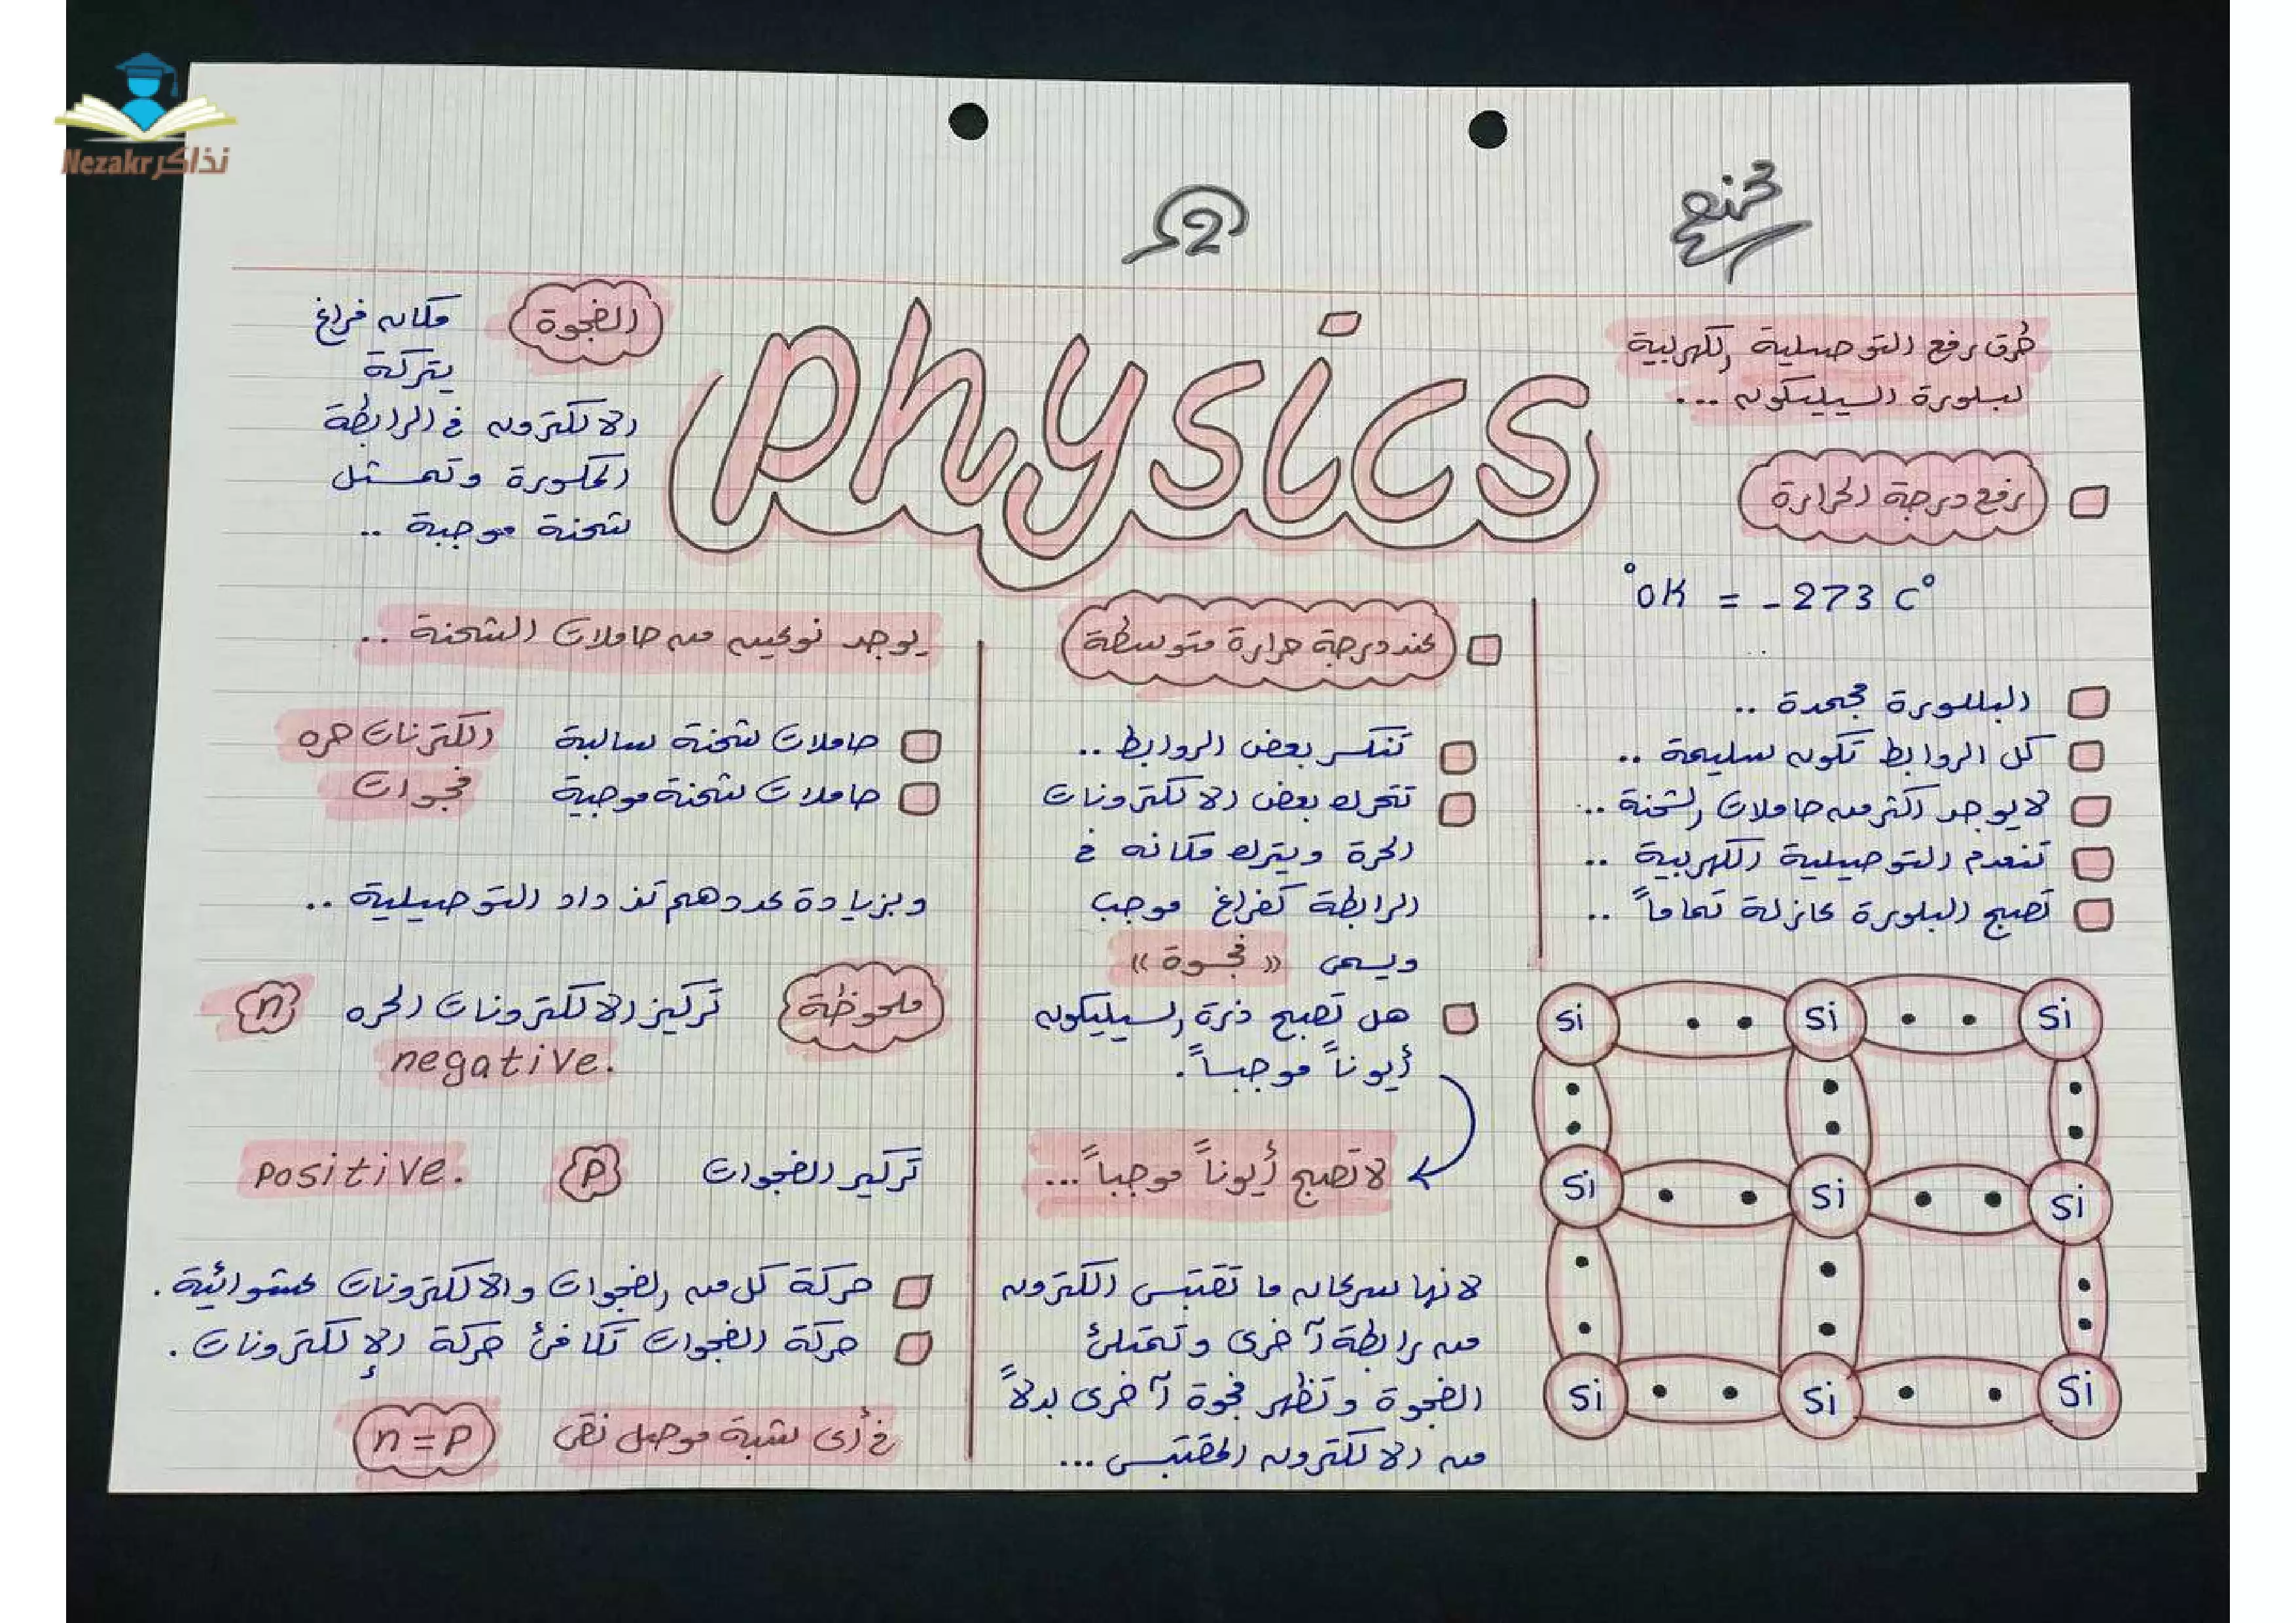 Nezakr نذاكر
2
physics
طرق رفع التوصيلية الكهربية
لبلورة السيليكون ...
رفع درجة الحرارة
°0K = -273 C°
البللورة مجمدة ..
كل الروابط تكون سليمة ..
لا يوجد اكثر من حاملات الشحنة ..
تنعدم التوصيلية الكهربية ..
تصبح البلورة عازلة تماماً ..
Si Si Si
Si Si Si
Si Si Si
عند درجة حرارة متوسطة
تنكسر بعض الروابط ..
تتحرك بعض الالكترونات
الحرة ويترك مكانه في
الرابطة كفراغ موجب
ويسمى « فجوة »
هل تصبح ذرة السيليكون
أيوناً موجباً.
لا تصبح أيوناً موجباً ...
لانها سرعان ما تقتبس الكترون
من رابطة آخرى وتمتلئ
الفجوة وتظهر فجوة آخرى بدلاً
من الالكترون المقتبس ...
الفجوة
مكان فراغ
يتركة
الالكترون في الرابطة
المكسورة وتمثل
شحنة موجبة ..
يوجد نوعين من حاملات الشحنة ..
حاملات شحنة سالبة الكترنات حره
حاملات شحنة موجبة فجوات
وبزيادة عددهم تذداد التوصيلية ..
ملحوظة تركيز الالكترونات الحره n
negative.
تركير الفجوات p positive.
حركة كل من الفجوات والالكترونات عشوائية.
حركة الفجوات تكافئ حركة الإلكترونات.
في أى شبة موصل نقى n = p